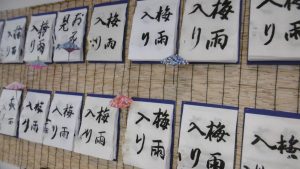 梅雨
入り
梅雨
入り
梅雨
入り
梅雨
入り
梅雨
入り
梅雨
入り
梅雨
入り
梅雨
入り
梅雨
入り
梅雨
入り
梅雨
入り
梅雨
入り